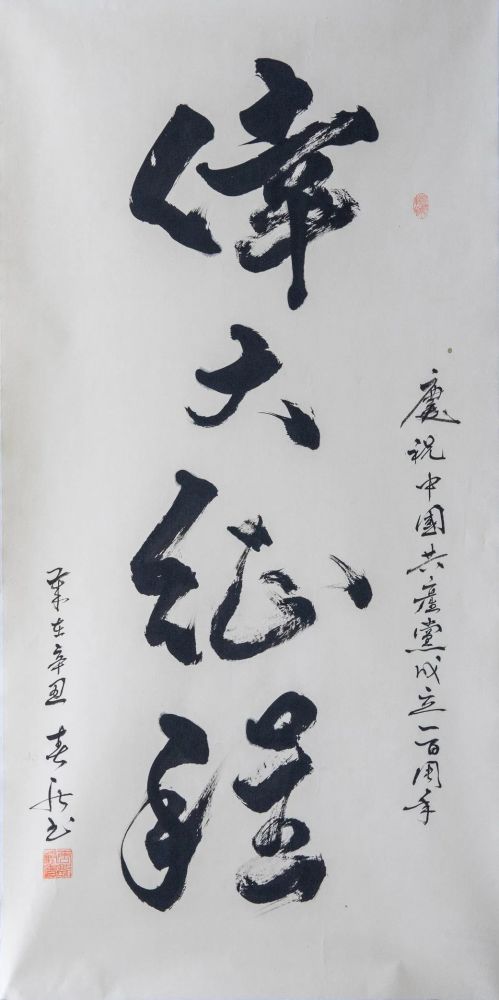 慶祝中國共產黨成立一百周年
偉大征程
歲在辛丑 春 書